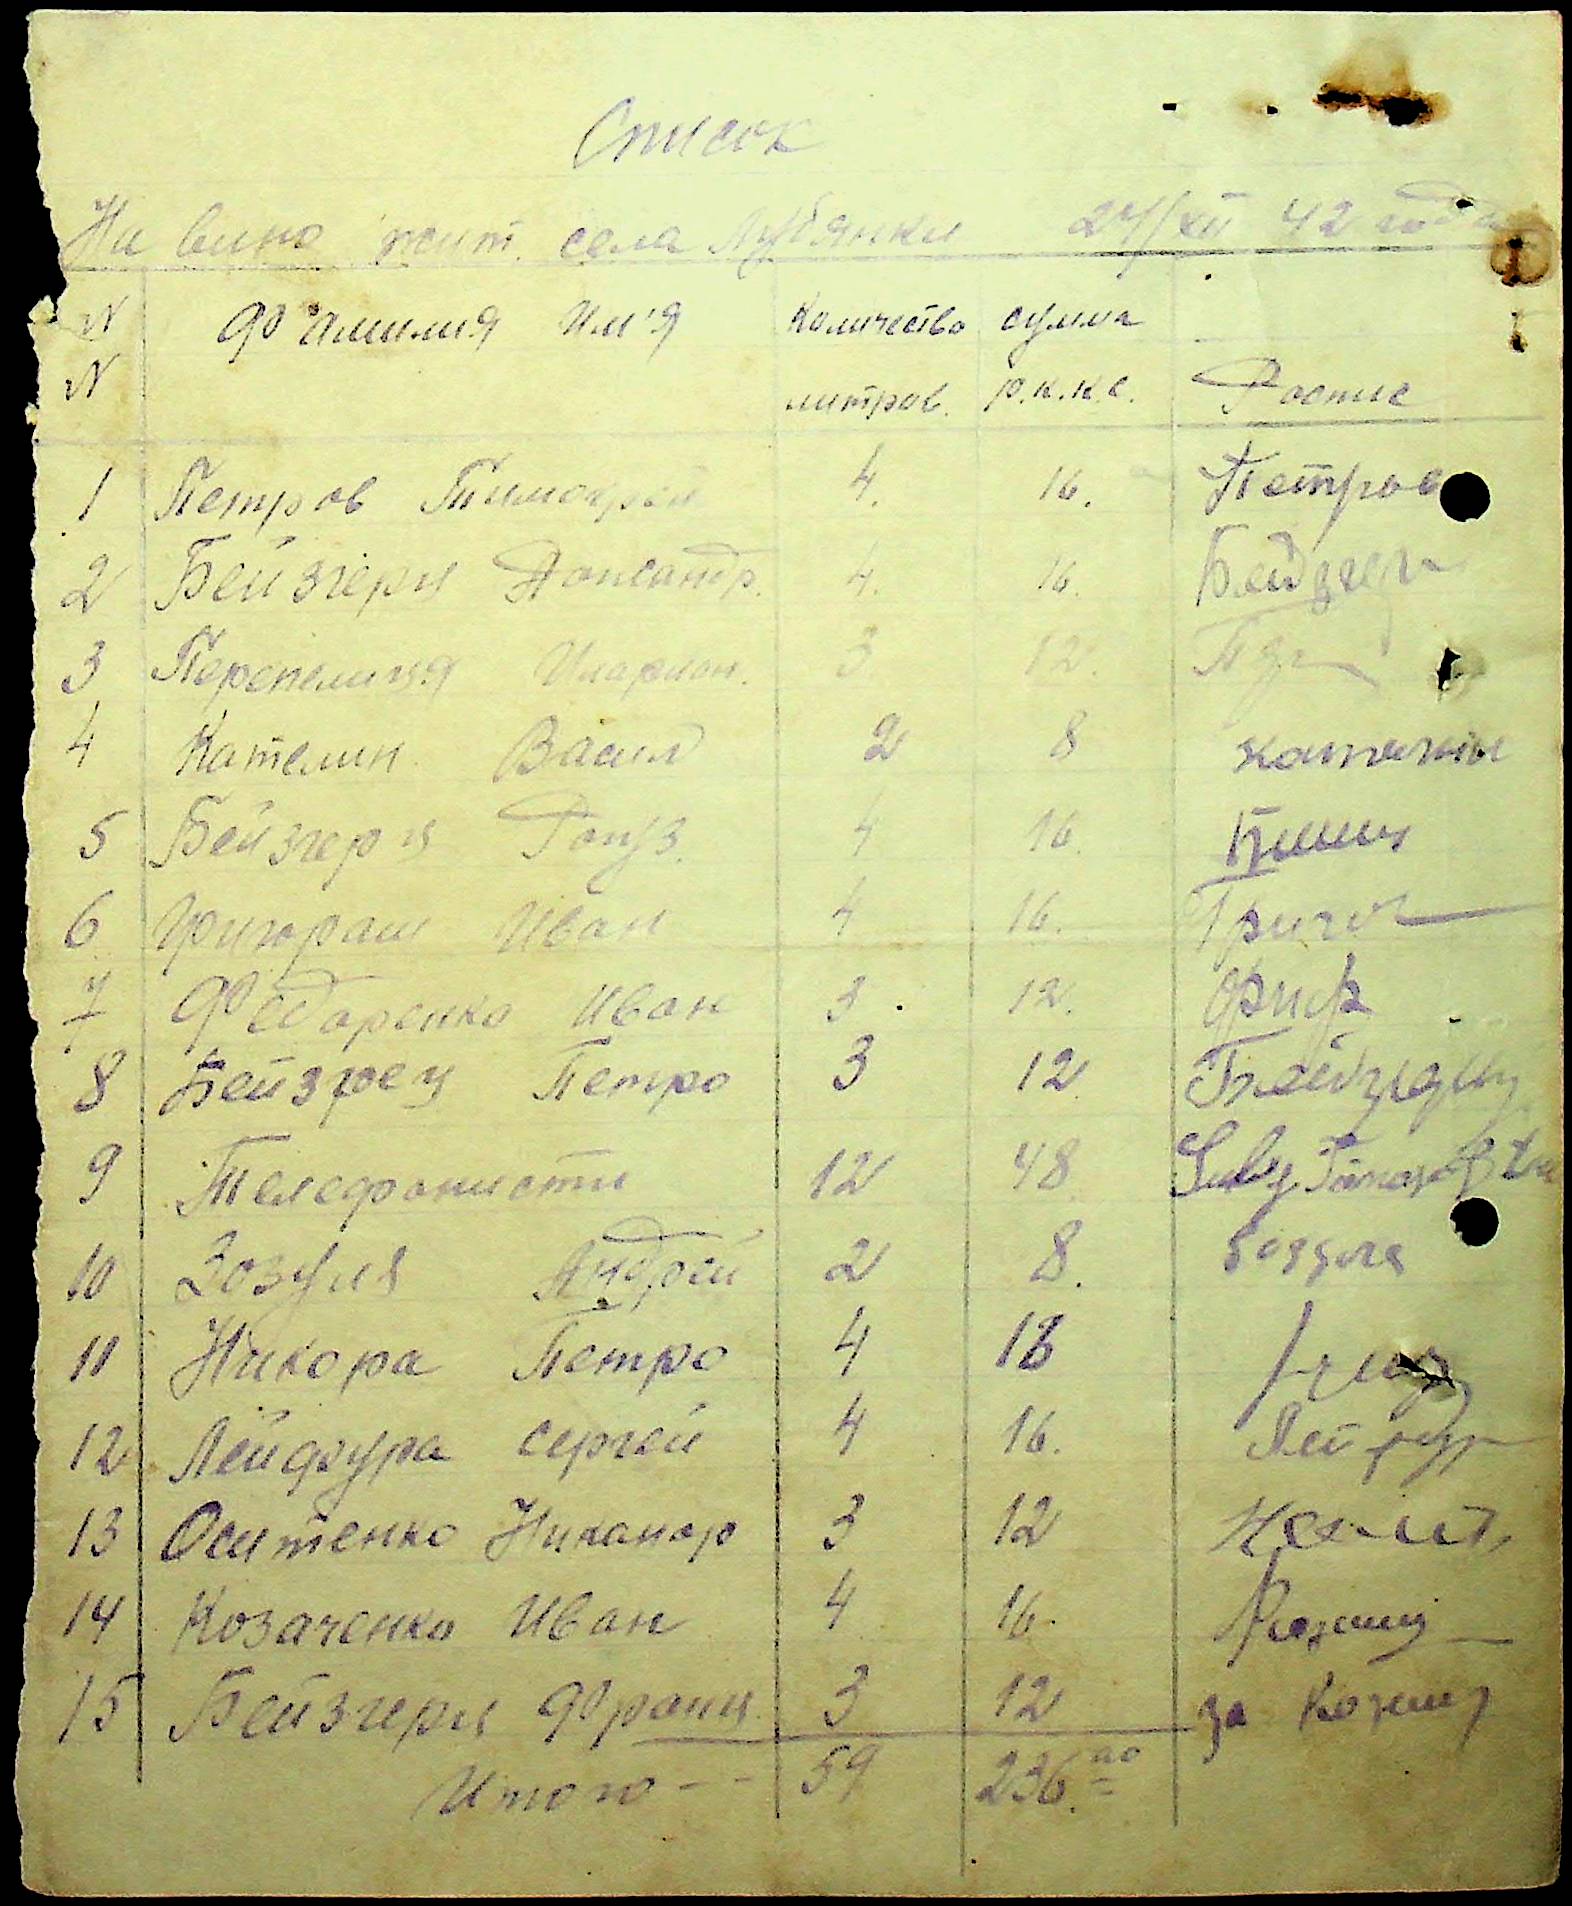 Список
На вино жит. села Лубянки 24/XII 42 года
N Фамилия Им'я Количество сумма
N литров. р.к.к.с. Роспис
1 Петров Тимофей 4. 16. Петров
2 Бейзгерц 4. 16.
3 Перепелиця Иларион. 3 12.
4 Кателин Васил 2 8
5 Бейзгерц 4 16.
6 Григораш Иван 4 16. Григо
7 Федоренко Иван 3. 12.
8 Бейзгрец Петро 3 12
9 Телефонисти 12 48
10 Зозуля Андрей 2 8. Зозуля
11 Никора Петро 4 16
12 Лейфура Сергей 4 16.
13 Оситенко Никанор 3 12
14 Козаченко Иван 4 16.
15 Бейзгерц Франц 3 12 за
Итого - - 59 236.